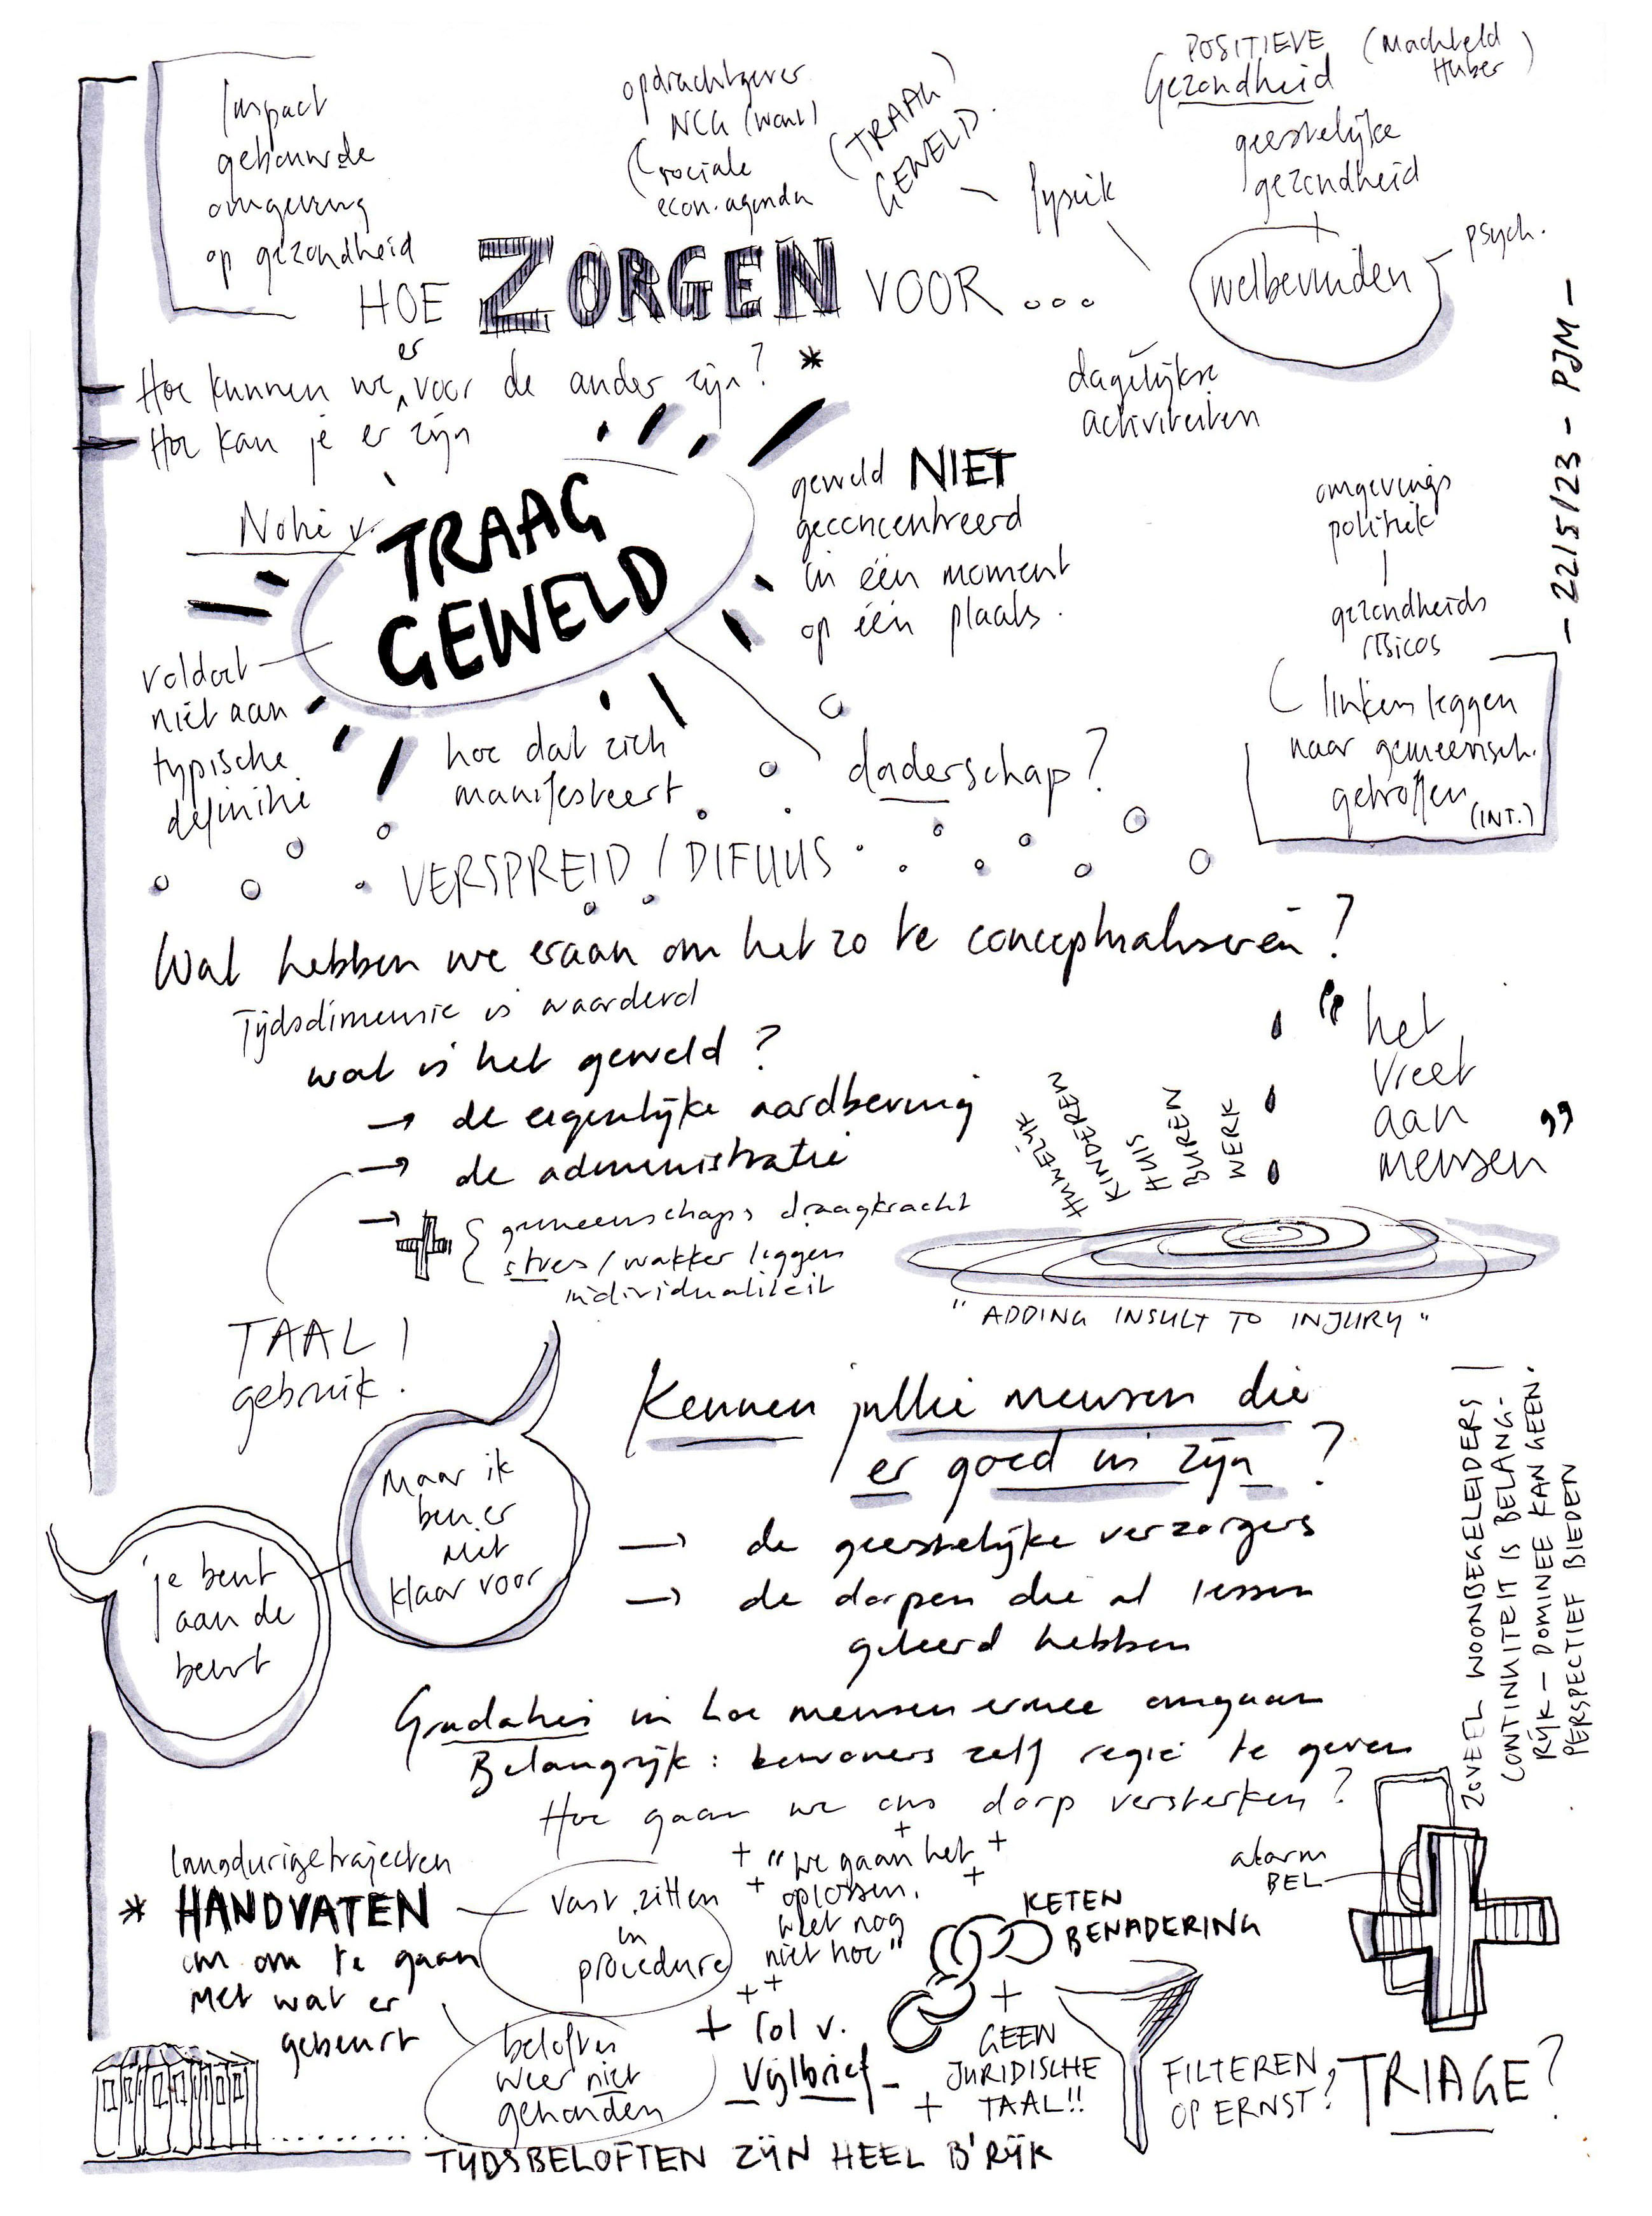 Impact
gebouwde
omgeving
op gezondheid
opdrachtgever
NCG (want)
sociale
econ. agenda
(TRAAG)
GEWELD.
fysiek
POSITIEVE
Gezondheid
(Machteld
Huber)
geestelijke
gezondheid
+
welbevinden
psych.
HOE ZORGEN VOOR ...
Hoe kunnen we er voor de ander zijn? *
Hoe kan je er zijn
dagelijkse
activiteiten
- 22/5/23 - PJM -
Notie v.
TRAAG
GEWELD
geweld NIET
geconcentreerd
in één moment
op één plaats.
omgevings
politiek
gezondheids
risicos
linken leggen
naar gemeensch.
getroffen
(INT.)
voldoet
niet aan
typische
definitie
hoe dat zich
manifesteert
daderschap?
VERSPREID / DIFUUS
Wat hebben we eraan om het zo te conceptualiseren?
Tijdsdimensie is waarderd
wat is het geweld?
→ de eigenlijke aardbeving
→ de administratie
→ gemeenschaps draagkracht
stres / wakker leggen
individualiteit
HUWELIJK
KINDEREN
HUIS
BUREN
WERK
"het
vreet
aan
mensen"
"ADDING INSULT TO INJURY"
TAAL!
gebruik.
Maar ik
ben er
niet
klaar voor
je bent
aan de
beurt
Kennen jullie mensen die
er goed in zijn?
→ de geestelijke verzorgers
→ de dorpen die al lessen
geleerd hebben
ZOVEEL WOONBEGELEIDERS!
CONTINUITEIT IS BELANG-
RIJK - DOMINEE KAN GEEN
PERSPECTIEF BIEDEN
Gradaties in hoe mensen ermee omgaan
Belangrijk: bewoners zelf regie te geven
Hoe gaan we ons dorp versterken?
langdurige trajecten
* HANDVATEN
om om te gaan
met wat er
gebeurt
vast zitten
in
procedure
beloften
weer niet
gehouden
"we gaan het
oplossen,
weet nog
niet hoe"
+ rol v.
Vijlbrief -
KETEN
BENADERING
+
GEEN
JURIDISCHE
+ TAAL!!
alarm
BEL
FILTEREN
OP ERNST?
TRIAGE?
TIJDSBELOFTEN ZIJN HEEL B'RIJK